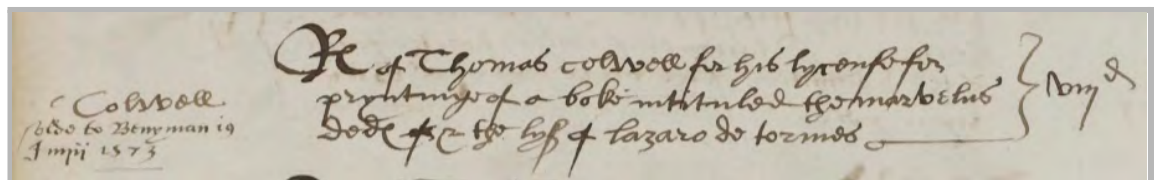 Colwell
solde to Benyman 19
Junij 1573
R of Thomas colwell for his lycense for
pryntinge of a boke intituled the marvelus
dedes of & the lyf of lazaro de tormes
viij d